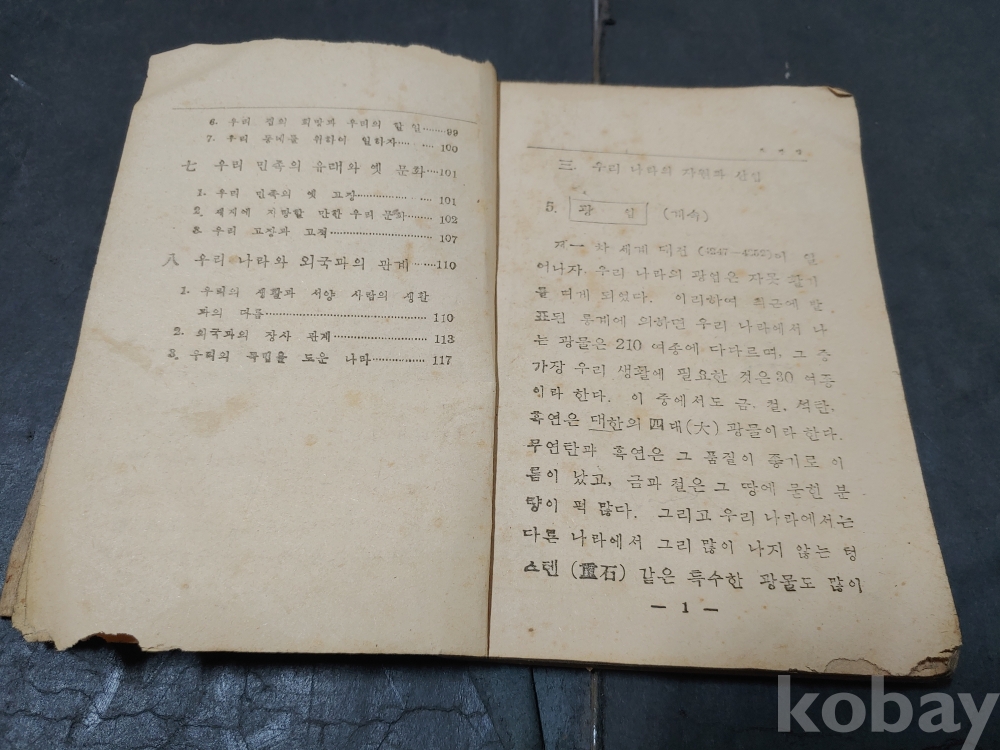 6. 우리 집의 희망과 우리의 할 일……99
7. 우리 동네를 위하여 일하자……100
七 우리 민족의 유래와 옛 문화……101
1. 우리 민족의 옛 고장……101
2. 세계에 자랑할 만한 우리 문화……102
3. 우리 고장과 고적……107
八 우리 나라와 외국과의 관계……110
1. 우리의 생활과 서양 사람의 생활
과의 다름……110
2. 외국과의 장사 관계……113
3. 우리의 독립을 도운 나라……117
三 우리 나라의 자원과 산업
5. 광 업 (계속)
제一 차 세계 대전 (4247—4252)이 일
어나자 우리 나라의 광업은 자못 활기
를 띠게 되었다. 이리하여 최근에 발
표된 통계에 의하면 우리 나라에서 나
는 광물은 210 여종에 다다르며, 그 중
가장 우리 생활에 필요한 것은 30 여종
이라 한다. 이 중에서도 금. 철. 석탄.
흑연은 대한의 四대(大) 광물이라 한다.
무연탄과 흑연은 그 품질이 좋기로 이
름이 났고, 금과 철은 그 땅에 묻힌 분
량이 퍽 많다. 그리고 우리 나라에서는
다른 나라에서 그리 많이 나지 않는 텅
스텐 (重石) 같은 특수한 광물도 많이
— 1 —
kobay